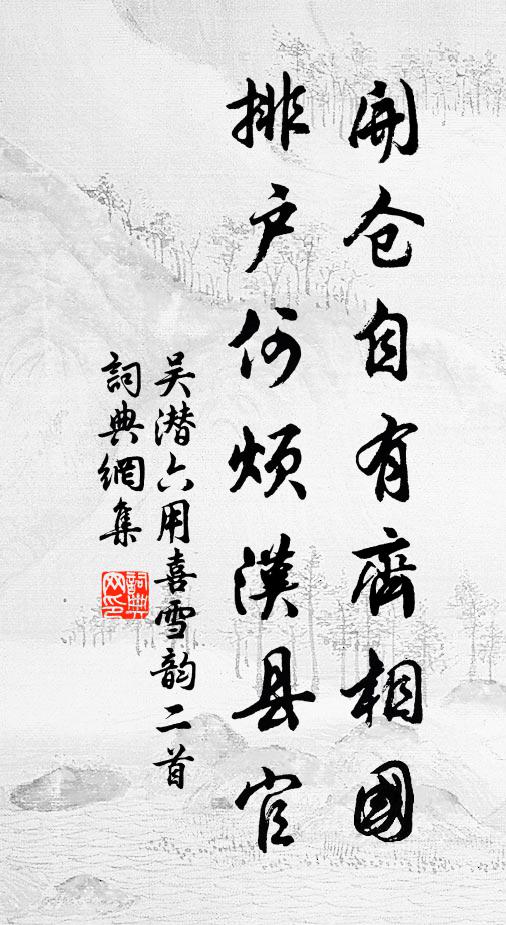 開仓自有齊相國
排户何烦漢县官
吴潜六用喜雪韵二首
詞典網集
詞典网印